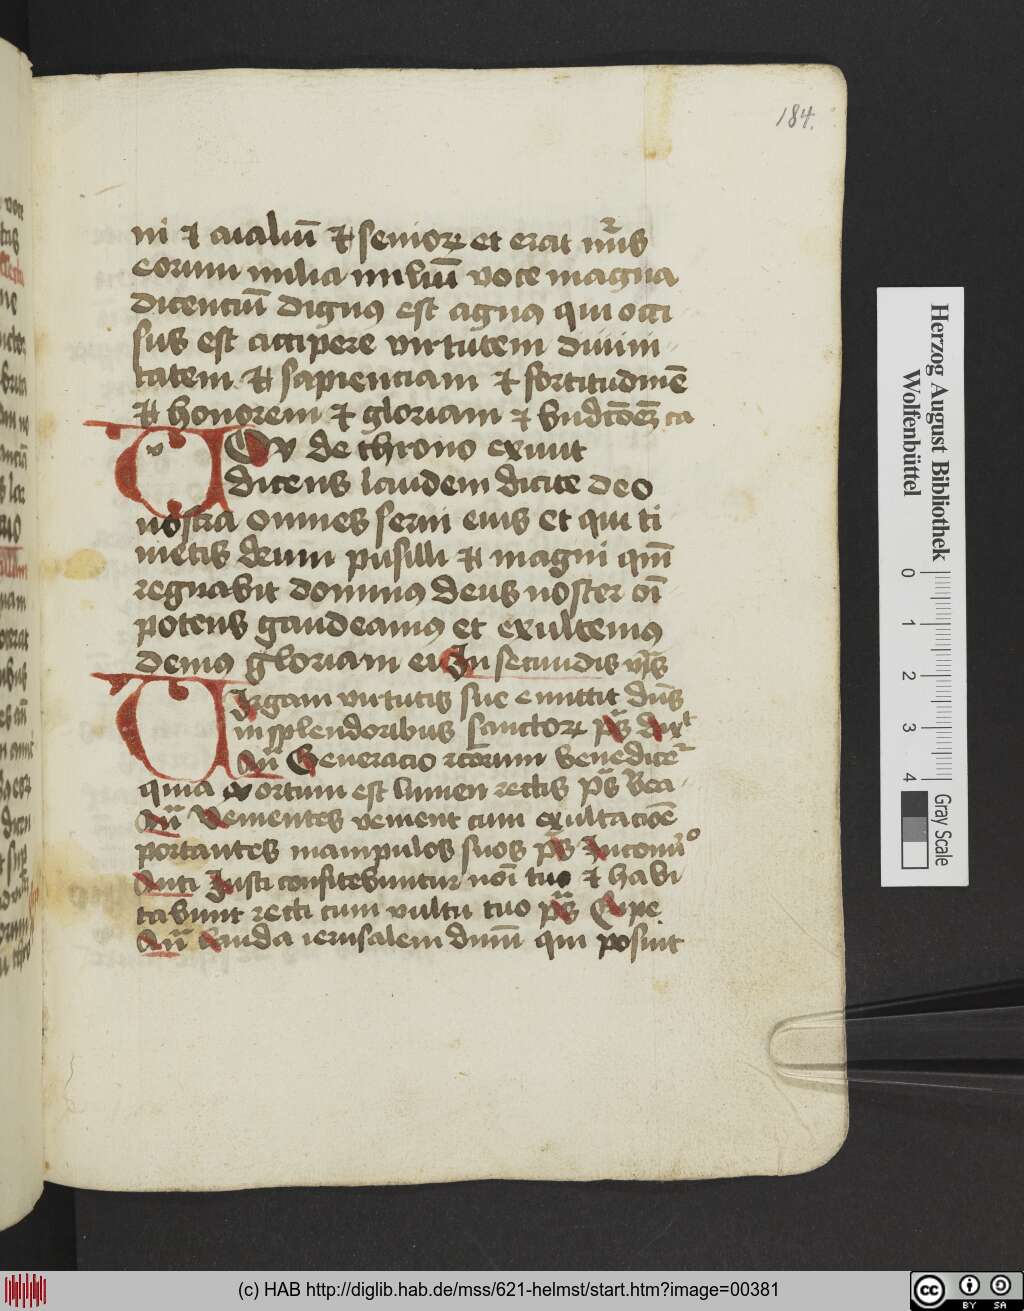 184.
ni et aialiū et senior et erat nūs
eorum milia miliū voce magna
dicenciū dignus est agnus qui occi
sus est accipere virtutem divini
tatem et sapienciam et fortitudinē
et honorem et gloriam et bndcōēz ca
Vox de throno exivit
dicens laudem dicite deo
nostra omnes servi eius et qui ti
metis deum pusilli et magni qm̄
regnavit dominus deus noster oī
potens gaudeamus et exultemus
demus gloriam ei In secundis vp̄is
Virgam virtutis sue emittit dn̄s
in splendoribus sanctor ps̄ dixt
Añ Generacio rectorum benedicet
quia exortum est lumen rectis ps̄ Bea
Añ Venientes venient cum exultacōē
portantes manipulos suos ps̄ In conv̄o
Anti Iusti confitebuntur noī tuo et habi
tabunt recti cum vultu tuo ps̄ Eripe
Añ Lauda ierusalem dnm̄ qui posuit
Herzog August Bibliothek
Wolfenbüttel
0 1 2 3 4
Gray Scale
(c) HAB http://diglib.hab.de/mss/621-helmst/start.htm?image=00381
cc BY SA